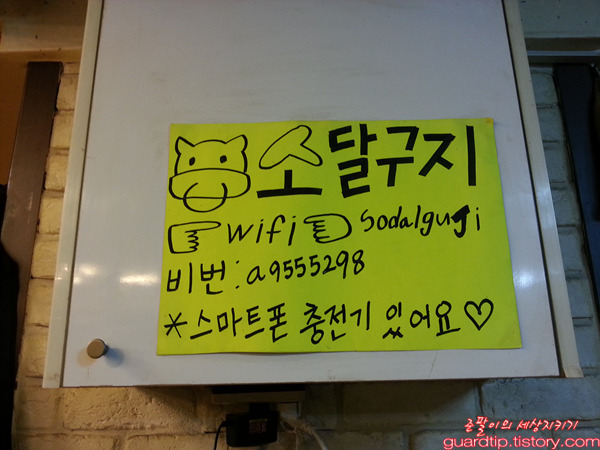 소달구지
wifi sodalguji
비번:a9555298
*스마트폰 충전기 있어요♡
존팔이의 세상지키기
guardtip.tistory.com